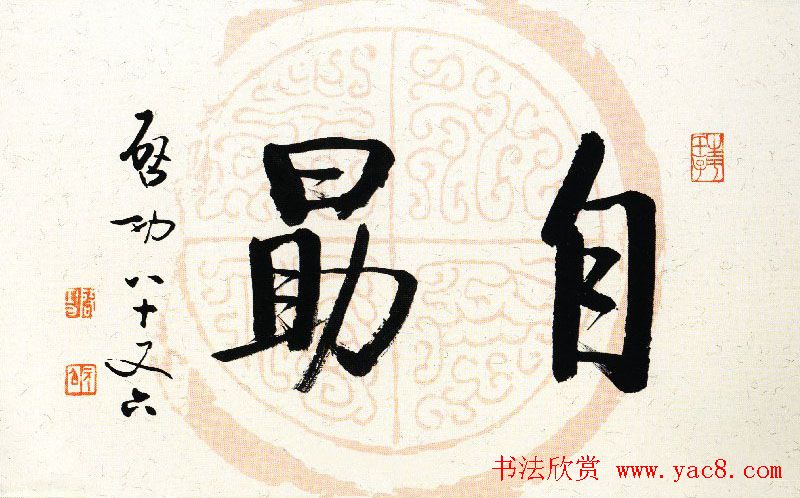 自勗
启功八十又六
书法欣赏 www.yac8.com